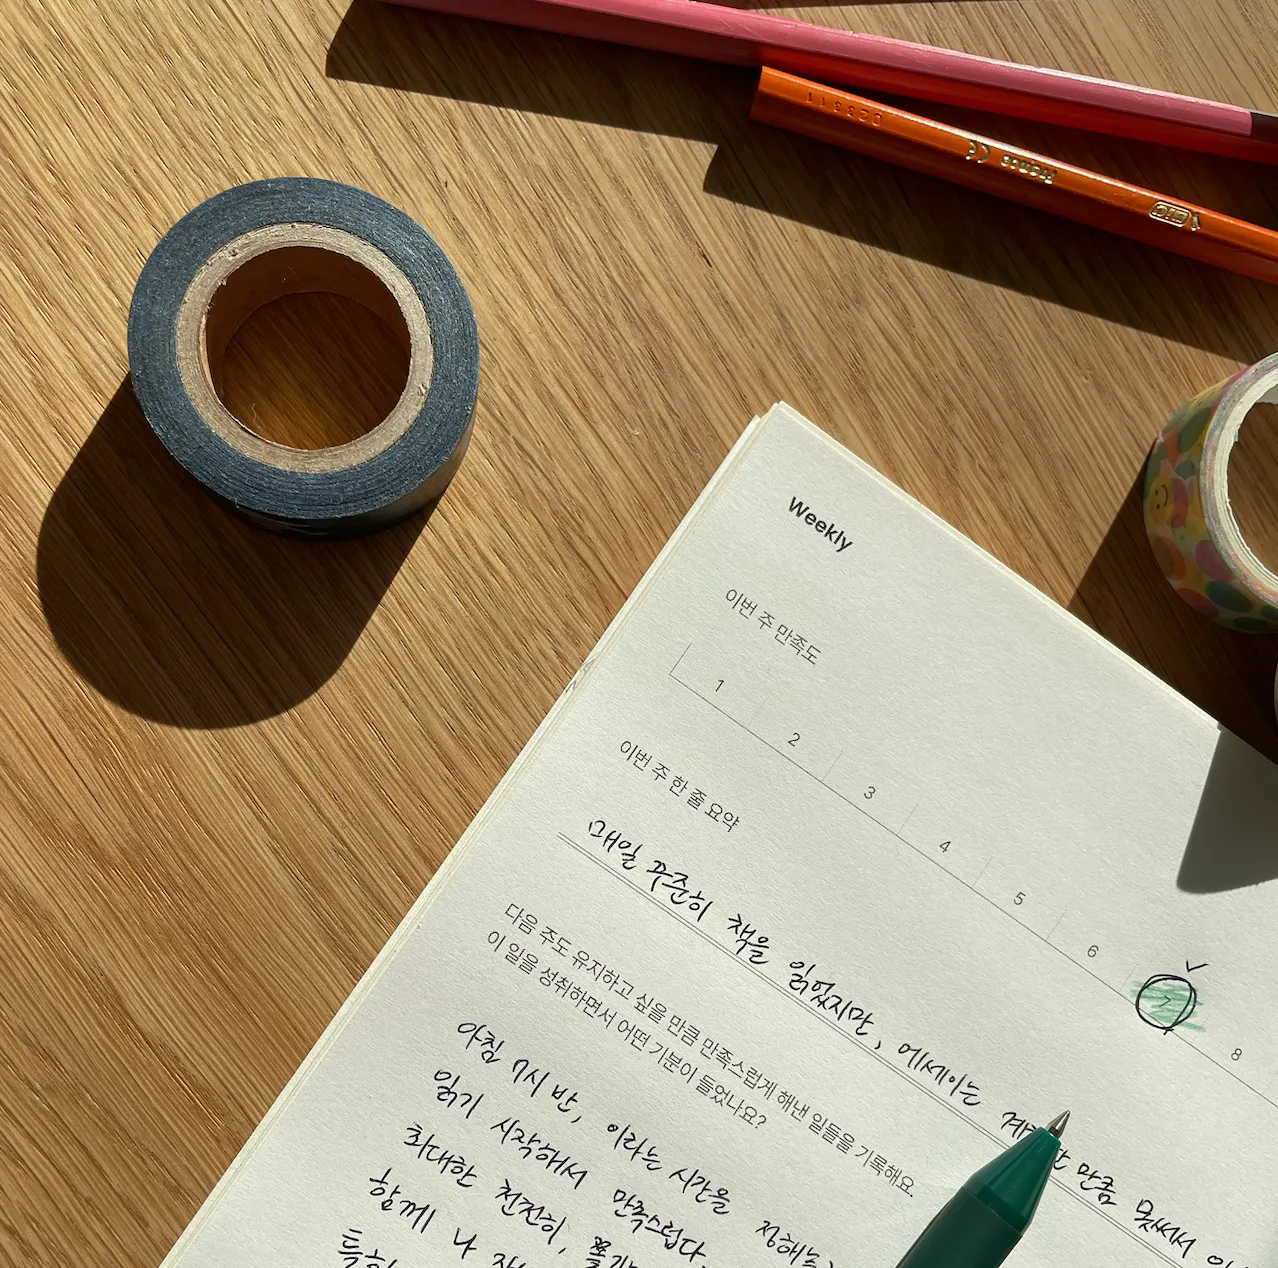 023311
France CE
BIC
Weekly
이번 주 만족도
1 2 3 4 5 6 7 8
이번 주 한 줄 요약
매일 꾸준히 책을 읽었지만, 에세이는 만큼 못써서
다음 주도 유지하고 싶을 만큼 만족스럽게 해낸 일들을 기록해요.
이 일을 성취하면서 어떤 기분이 들었나요?
아침 7시 반, 이라는 시간을 정해놓고
읽기 시작해서 만족스럽다.
최대한 천천히,
함께 나
특히